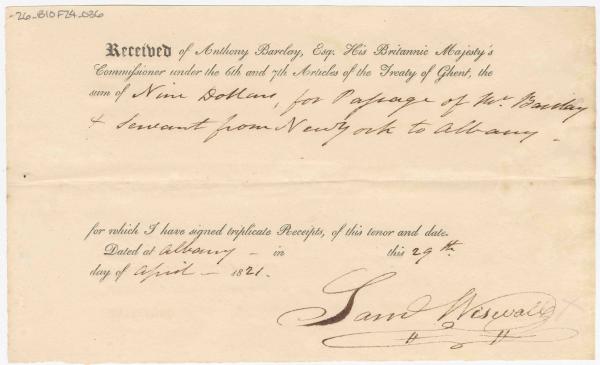 -26_B10F24_036
Received of Anthony Barclay, Esq. His Britannic Majesty's
Commissioner under the 6th and 7th Articles of the Treaty of Ghent, the
sum of Nine Dollars, for Passage of Mr. Barclay
& Servant from New York to Albany.
for which I have signed triplicate Receipts, of this tenor and date.
Dated at Albany — in this 29th.
day of April — 1821.
Saml Wiswall